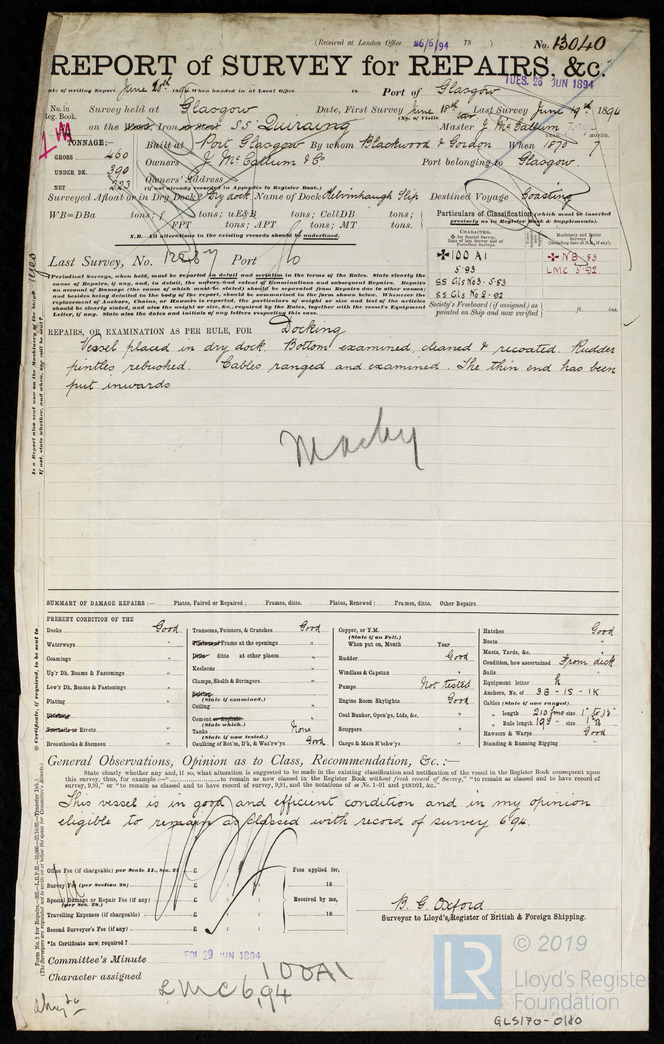 (Received at London Office 26/6/94 78 ) No. 13040
REPORT of SURVEY for REPAIRS, &c.
TUES. 26 JUN 1894
Date of writing Report June 20th 1894 When handed in at Local Office 18 Port of Glasgow
No. in Reg. Book. Survey held at Glasgow Date, First Survey June 18th Last Survey June 19th 1894
(No. of Visits
on the Wood, Iron or Steel SS Quiraing Master J. McCallum
TONNAGE:— Built at Port Glasgow By whom Blackwood & Gordon When 1870 7
YEAR. MONTH.
GROSS 460
UNDER DK. 390
NET 223
Owners J. McCallum & Co Port belonging to Glasgow.
Owners' Address
(if not already recorded in Appendix to Register Book.)
Surveyed Afloat or in Dry Dock? Dry dock Name of Dock Kelvinhaugh Slip Destined Voyage Coasting
WB=DBa tons; f tons; uE&B tons; CellDB tons;
FPT tons; APT tons; MT tons.
N.B.—All alterations in the existing records should be underlined.
Particulars of Classification (which must be inserted precisely as in Register Book & Supplements).
CHARACTER.
Machinery and Boiler Surveys
✠ 100 A1
5.93
SS Gls No3 - 5.83
SS Gls No 2 - 92
✠ NB 83
LMC 5.92
Society's Freeboard (if assigned) as painted on Ship and now verified ft. ins.
Last Survey, No. Port
(Periodical Surveys, when held, must be reported in detail and seriatim in the terms of the Rules. State clearly the
cause of Repairs, if any, and, in detail, the nature and extent of Examinations and subsequent Repairs. Repairs
on account of Damage (the cause of which must be stated) should be separated from Repairs due to other causes;
and besides being detailed in the body of the report, should be summarised in the form shown below. Whenever the
replacement of Anchors, Chains, or Hawsers is reported, the particulars of weight or size and test of the articles
should be clearly stated, and also the weight or size, &c., required by the Rules, together with the vessel's Equipment
Letter, if any. State also the dates and initials of any letters respecting this case.
REPAIRS, OR EXAMINATION AS PER RULE, FOR Docking
Vessel placed in dry dock. Bottom examined, cleaned & recoated. Rudder
pintles rebushed. Cables ranged and examined. The thin end has been
put inwards
SUMMARY OF DAMAGE REPAIRS :— Plates, Faired or Repaired ; Frames, ditto. Plates, Renewed ; Frames, ditto. Other Repairs
PRESENT CONDITION OF THE
Decks Good
Waterways "
Coamings "
Up'r Dk. Beams & Fastenings "
Low'r Dk. Beams & Fastenings "
Plating "
Rivets "
Breasthooks & Stemson "
Transoms, Pointers, & Crutches Good
Frame at the openings "
Ditto ditto at other places "
Keelsons "
Clamps, Shelfs & Stringers "
(State if examined.)
Ceiling "
Cement or Asphalte "
(State which.)
Tanks None
(State if now tested.)
Caulking of Bot'm, D'k, & Wat'rw'ys Good
Copper, or Y.M.
(State if on Felt.)
When put on, Month Year
Rudder Good
Windlass & Capstan "
Pumps Not tested
Engine Room Skylights Good
Coal Bunker, Open'gs, Lids, &c. "
Scuppers "
Cargo & Main H'tchw'ys "
Hatches Good
Boats "
Masts, Yards, &c. "
Condition, how ascertained From dick
Sails "
Equipment letter h
Anchors, No. of 3B - 1S - 1K
Cables (State if now ranged).
" length 210 fms size
" Rule length 195 - size
Hawsers & Warps Good
Standing & Running Rigging "
General Observations, Opinion as to Class, Recommendation, &c. :—
State clearly whether any, and if so, what alteration is suggested to be made in the existing classification and notification of the vessel in the Register Book consequent upon
this survey, thus, for example:—" to remain as classed in the Register Book without fresh record of Survey," "to remain as classed and to have record of
survey, 9,91," or "to remain as classed and to have record of survey, 9,91, and the notations of ss No. 1-91 and ptND91, &c."
This vessel is in good and efficient condition and in my opinion
eligible to remain as classed with record of survey 6 94.
Office Fee (if chargeable) per Scale II., Sec. 27 £ : :
Survey Fee (per Section 28) £ : :
Special Damage or Repair Fee (if any) (per Sec. 28.) £ : :
Travelling Expenses (if chargeable) £ : :
Second Surveyor's Fee (if any) £ : :
Fees applied for,
18
Received by me,
18
B. G. Oxford
Surveyor to Lloyd's Register of British & Foreign Shipping.
*Is Certificate now required?
Committee's Minute FRI 29 JUN 1894
Character assigned 100A1
LMC 6,94
© 2019
LR
Lloyd's Register
Foundation
GLS170-0180